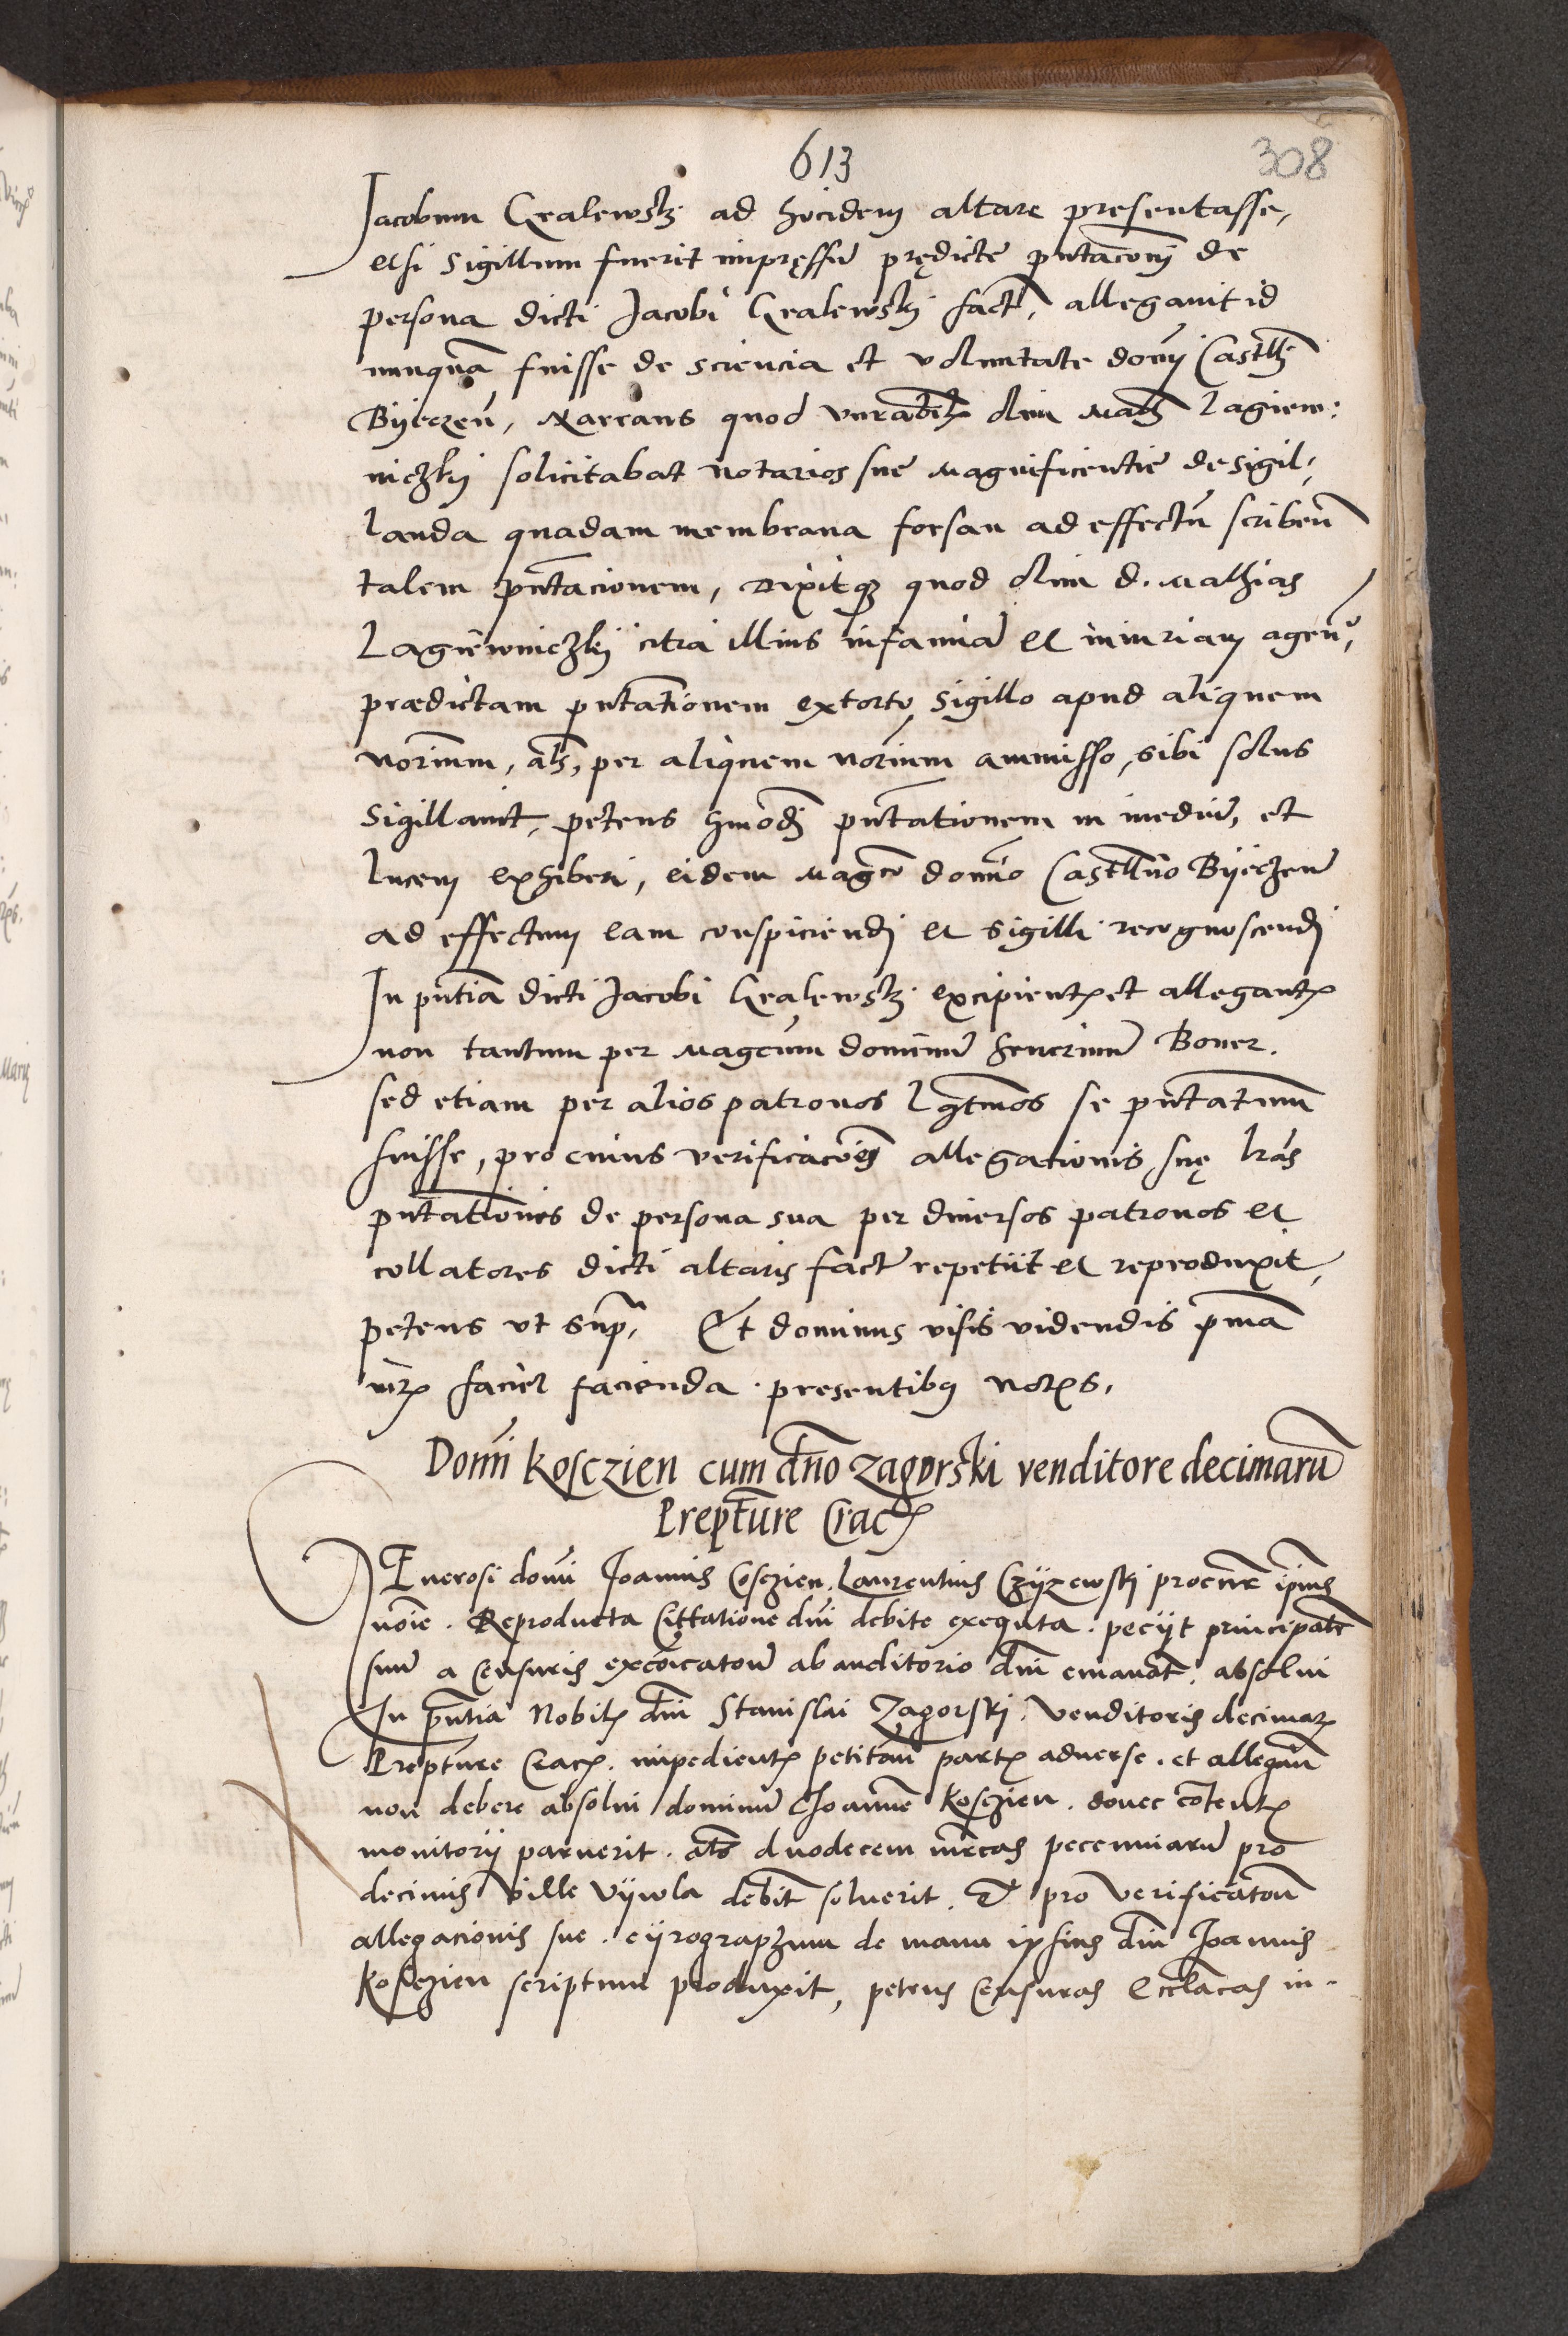 613
308
Jacobum Gralewskj ad hocidem altare presentasse,
etsi sigillum fuerit impręssū prędicte pñtaconj de
persona dicti Jacobi Gralewskj fact, allegauit id
nunquā fuisse de sciencia et voluntate domj Castll
Byeczeñ, Narrans quod venrabil olim Maths Lagiew:
niczkj solicitabat notarios sue Magnificentie de sigil,
landa quadam membrana forsan ad effectū scribeñ
talem pñtacionem, Dixitqȝ quod olim d. Mathias
Lagiewniczkij citra illius infamiā et iniuriam ageñ,
prædictam pñtationem extorto sigillo apud aliquem
norium, als, per aliquem norium ammisso, sibi solus
sigillauit, petens hmodj pñtationem in mediū, et
lucem exhiberi, eidem Magco domno Castllño Byeczeñ
ad effectum eam conspiciendj et sigilli recognoscendj
In pñtia dicti Jacobi Gralewskj excipient et allegant
non tantum per Magcum dominū Seuerinū Boner.
sed etiam per alios patronos lgtmos se pñtatum
fuisse, pro cuius verificacoē allegationis suę lras
pñtationis de persona sua per diuersos patronos et
collatores dicti altaris fact repetiit et reproduxit,
petens vt supra, Et dominus visis videndis pma
iur faciet facienda. presentibus notis.
Domi Kosczien cum dño Zagorski venditore decimarū
Preptūre Crac
Enerosi domi Joannis Cosczien. Laurentius Czyzewskj procur ipius
noīe. Reproducta Cittatione dni debite exequta. pecijt principalē
suū a Censuris excoīcatoū ab auditorio dni emanat. absolui
In pñtia Nobil dni Stanislai Zagorskj. Venditoris decimar
Prepture Crac. impedient petitoni part aduerse. et allegañ
non debere absolui dominū Joannē Kosczien. donec contentꝭ
monitorij paruerit. als duodecem mrcas peccuniarū pro
decimis Ville Vijwla debit soluerit. Et pro Verificatoñ
allegacionis sue. cyrographum de manu ipsius dni Joannis
Kosczien scriptum produxit, petens Censuras Ecclacas in-